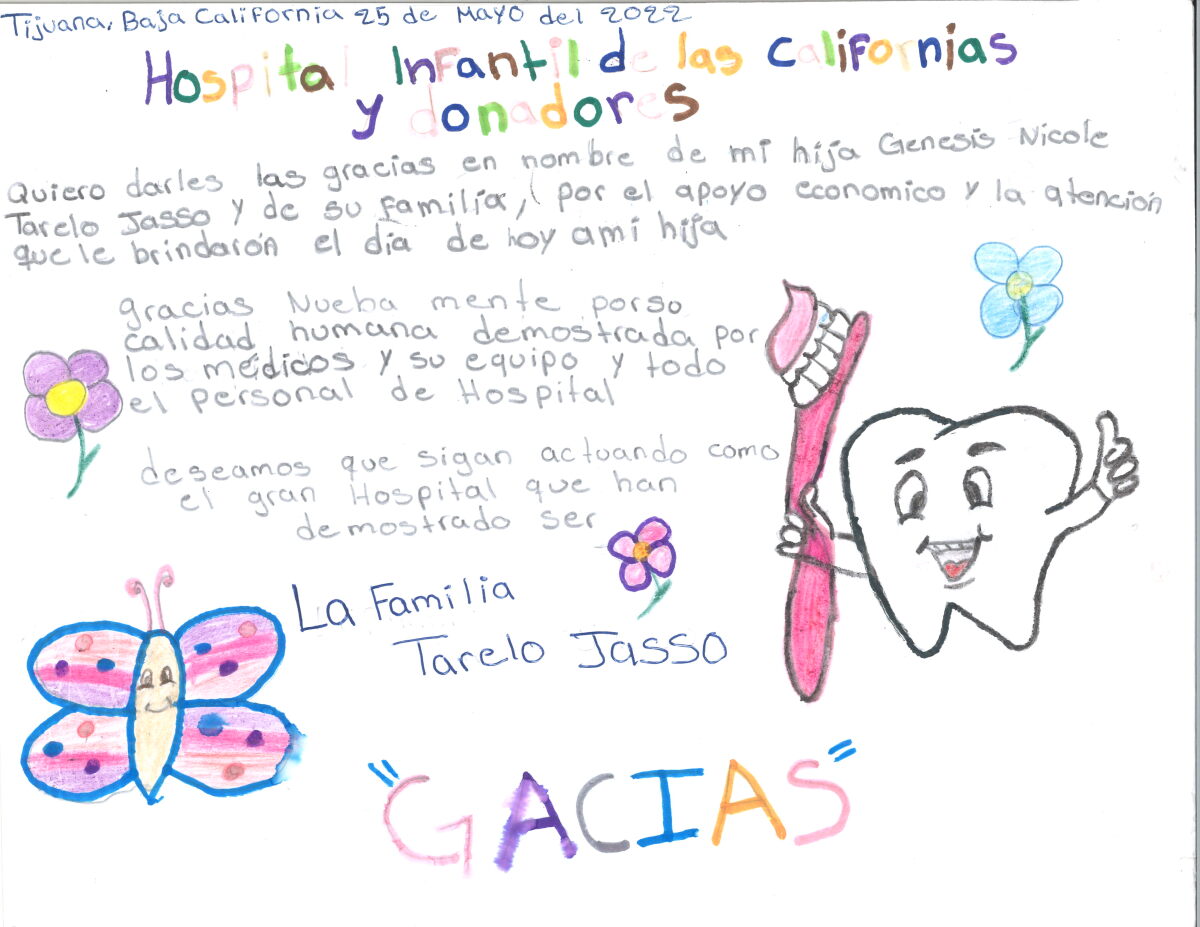 Tijuana, Baja California 25 de Mayo del 2022
Hospital Infantil de las Californias
y donadores
Quiero darles las gracias en nombre de mi hija Genesis Nicole
Tarelo Jasso y de su familia, por el apoyo economico y la atención
que le brindarón el día de hoy ami hija
gracias Nueba mente porso
calidad humana demostrada por
los médicos y su equipo y todo
el personal de Hospital
deseamos que sigan actuando como
el gran Hospital que han
demostrado ser
La Familia
Tarelo Jasso
"GACIAS"